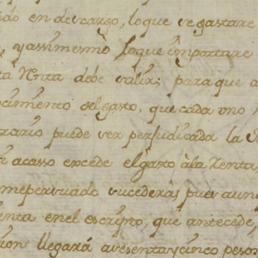 en descargo, loque se gastare
y assimesmo loque importare
ta Renta debe valer; para que a
cimiento del gasto, que cada uno
rario puede ser perjudicada la
acaso excede el gasto à la Renta
me persuado sucederàs pues aun
enta en el escripto, que antecede,
sion llegarà a sesenta y cinco peso